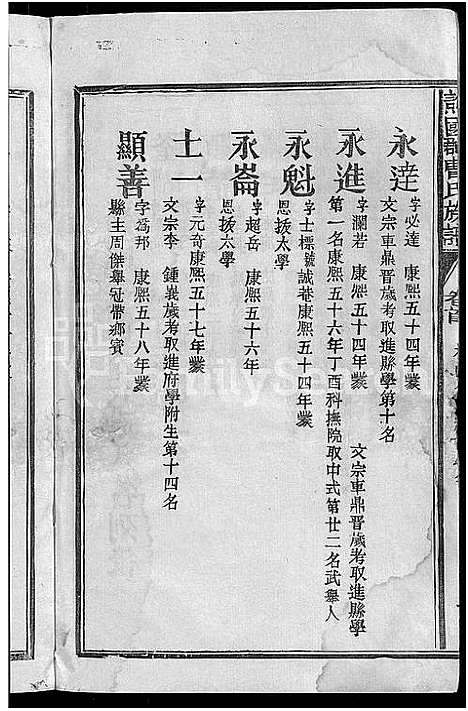 譙國郡曹氏族譜
卷首
永達
字必達 康熙五十四年蒙
文宗車鼎晉歲考取進縣學第十名
永進
字瀾若 康熙五十四年蒙 文宗車鼎晉歲考取進縣學
第一名康熙五十六年丁酉科撫院取中式第廿二名武舉人
永魁
字士標號誠菴康熙五十四年蒙
恩拔太學
永崙
字超岳 康熙五十六年
恩拔太學
士一
字元奇康熙五十七年蒙
文宗李 鍾峩歲考取進府學附生第十四名
顯善
字為邦 康熙五十八年蒙
縣主周傑舉冠帶鄉賓